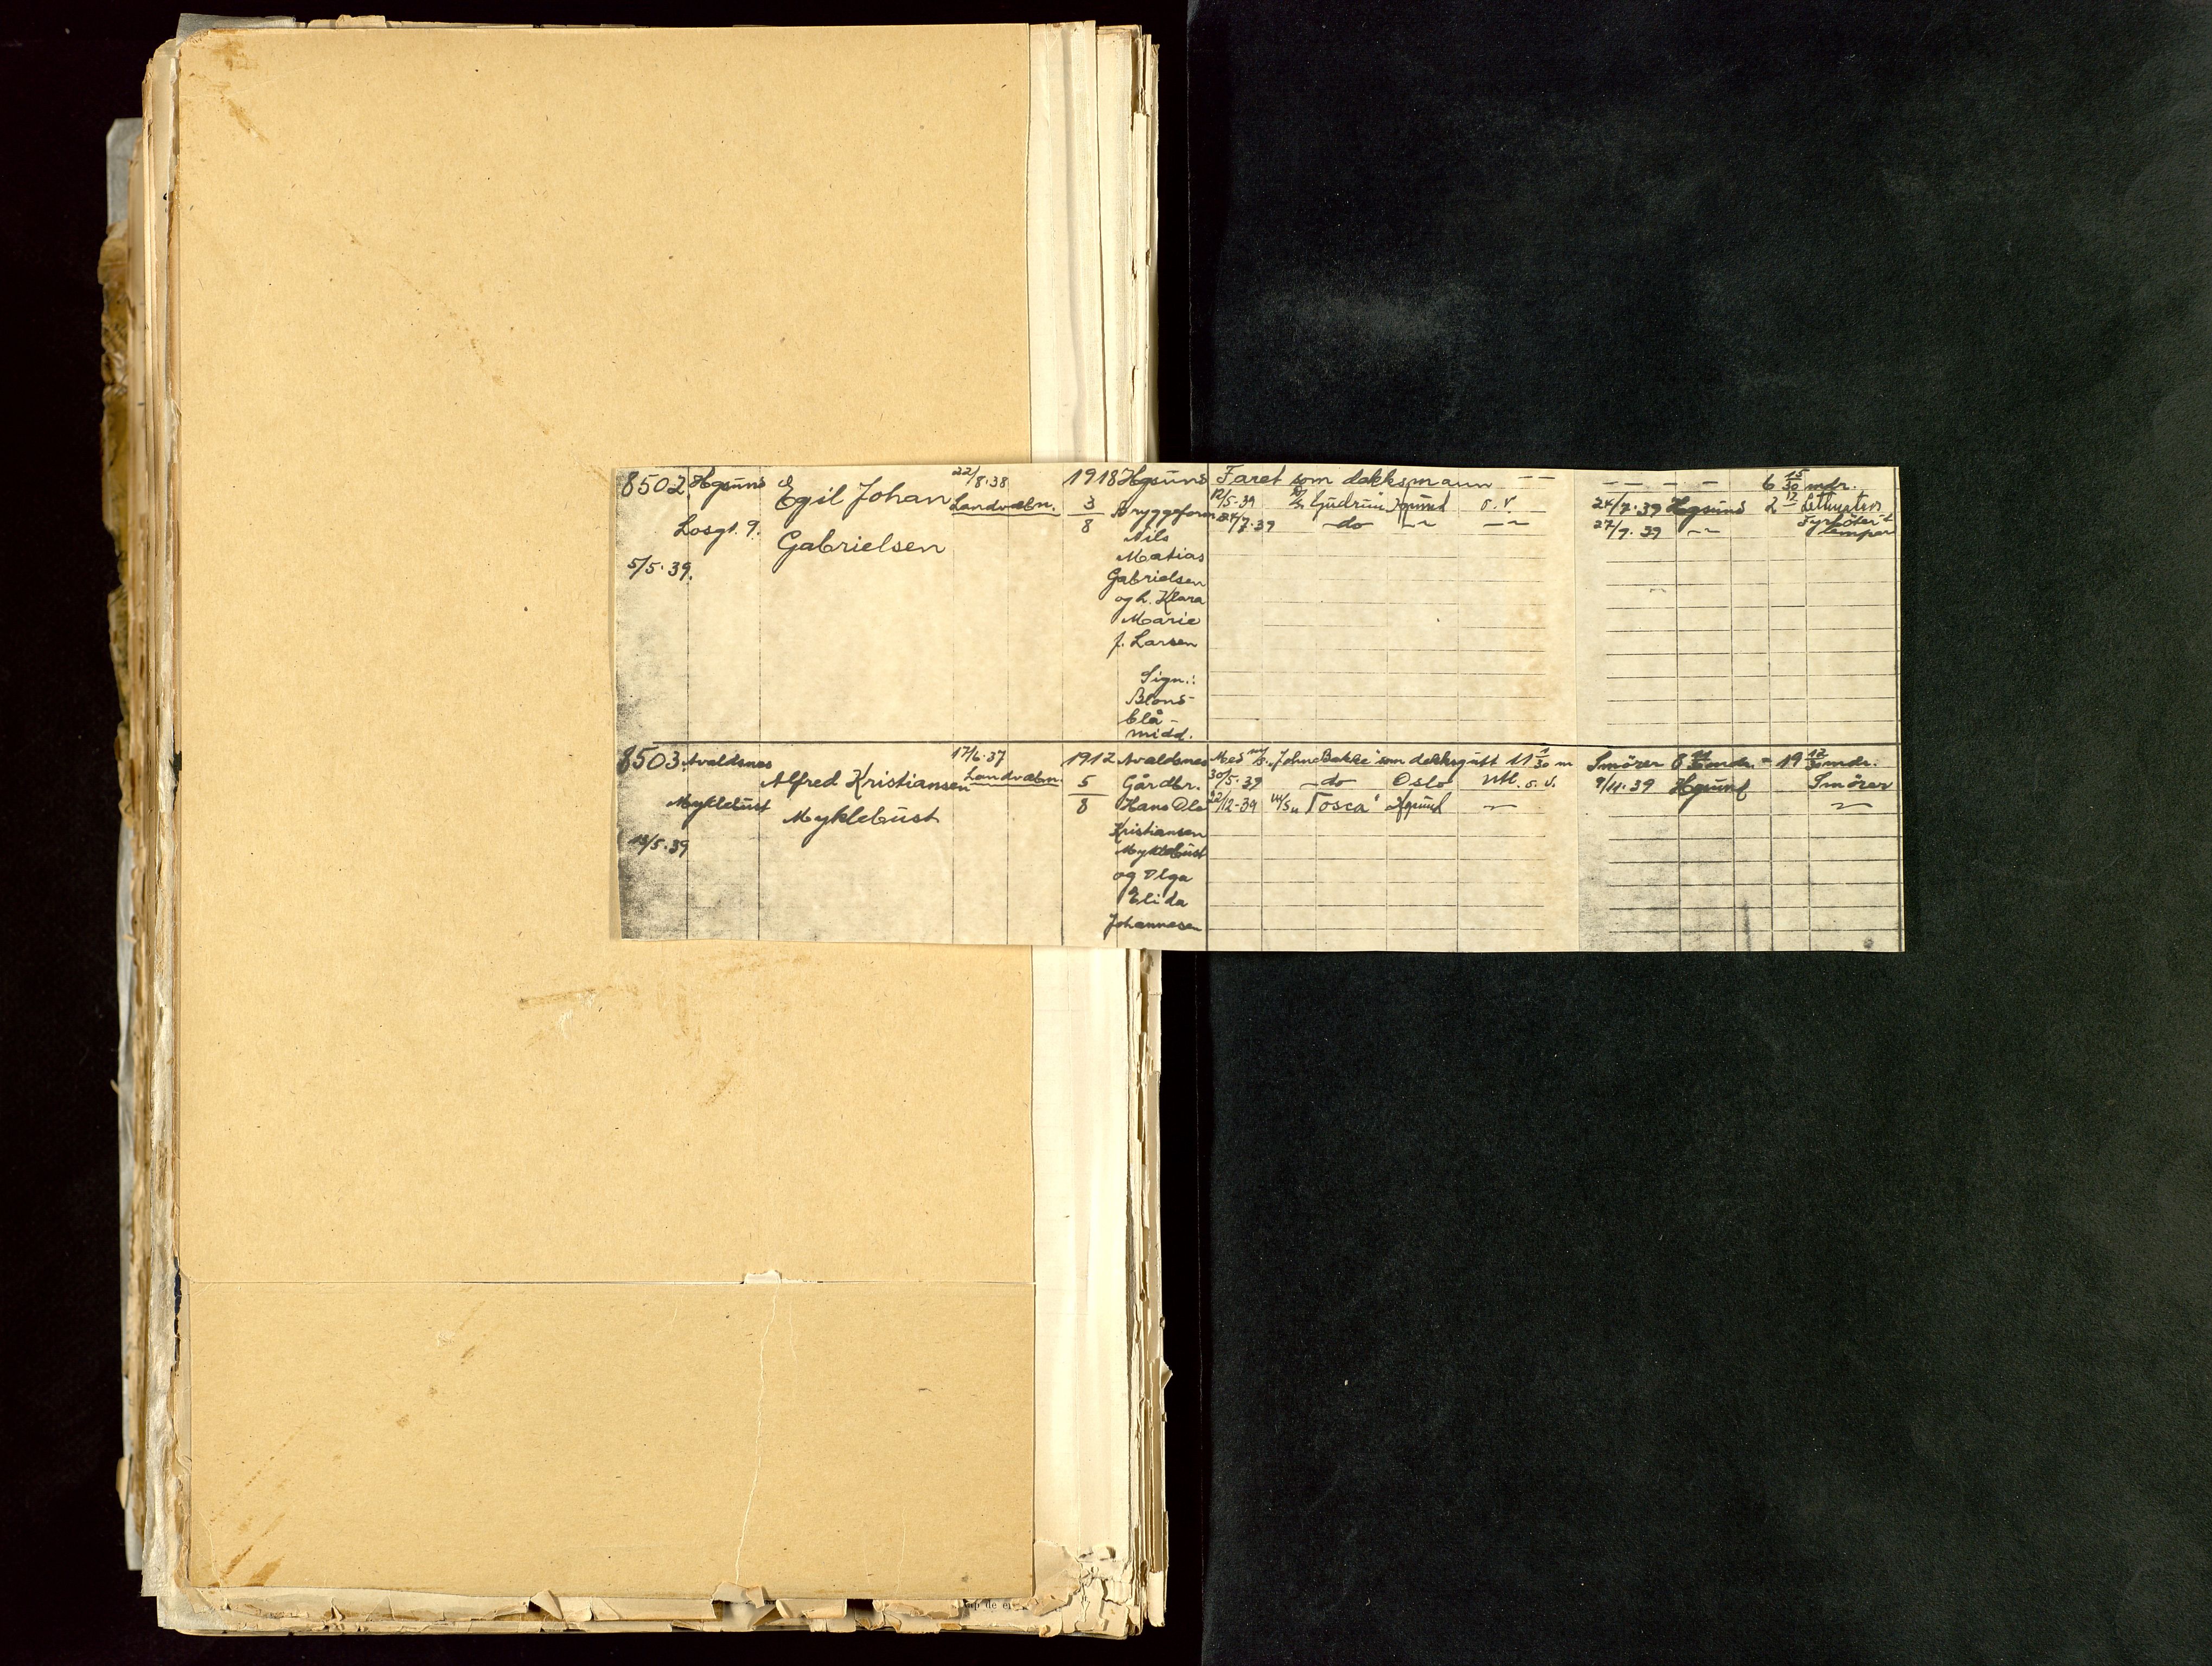 8502 Hgsund Egil Johan 22/8.38 1918 Hgsund Faret som dekksmann — — — — — — 6 15/30 mdr.
Losgt. 9. Gabrielsen Landvebn. 3/8 Bryggeform 12/5.39 "Gudrun" Hgsund o.v. 24/7.39 Hgsund 2 12 Lettmatros
24/7.39 —do— —"— —"— 27/9.39 —"— Fyrböter & lemper
5/5.39.
Nils
Matias
Gabrielsen
og h. Klara
Marie
f. Larsen
Sign.:
Blond-
blå-
midd.
8503 Avaldsnes Alfred Kristiansen 17/6.37 1912 Avaldsnes Med m/s "John Bakke" som dekksgutt 11 1/30 m Smörer 8 mdr. = 19 12/30 mdr.
Myklebust Myklebust Landvebn 5/8 Gårdbr. 30/5.39 —do— Oslo Utl. o. v. 9/11.39 Hgsund Smörer
Hans Ole 22/12-39 M/S "Tosca" Hgsund —"— —"—
13/5.39
Kristiansen
Myklebust
og Olga
Elida
Johannesen
op de e